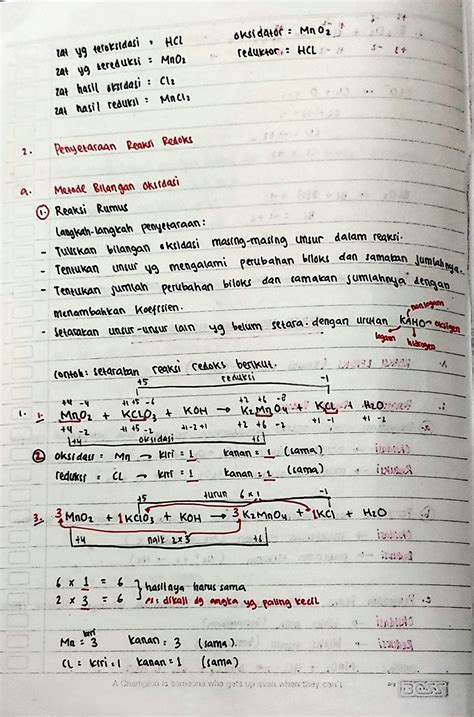 zat yg teroksidasi : HCl    oksidator = MnO₂
zat yg tereduksi : MnO₂    reduktor = HCl
zat hasil oksidasi : Cl₂
zat hasil reduksi : MnCl₂
2. Penyetaraan Reaksi Redoks
a. Metode Bilangan Oksidasi
1. Reaksi Rumus
Langkah-langkah penyetaraan:
- Tuliskan bilangan oksidasi masing-masing unsur dalam reaksi.
- Tentukan unsur yg mengalami perubahan biloks dan samakan jumlahnya.
- Tentukan jumlah perubahan biloks dan samakan jumlahnya dengan
menambahkan koefisien.
nonlogam
- Setarakan unsur-unsur lain yg belum setara dengan urutan KAHO → oksigen
logam hidrogen
Contoh: setarakan reaksi redoks berikut.
+5 reduksi -1
+4 -4 +1 +5 -6 +2 +6 -8
1. 1. MnO₂ + KClO₃ + KOH → K₂MnO₄ + KCl + H₂O
+4 -2 +1 +5 -2 +1 -2 +1 +2 +6 -2 +1 -1 +1 -2
+4 oksidasi +6
2 oksidasi = Mn → kiri = 1 kanan = 1 (sama)
reduksi = Cl → kiri = 1 kanan = 1 (sama)
+5 turun 6 x 1 -1
3. 3 MnO₂ + 1 KClO₃ + KOH → 3 K₂MnO₄ + 1 KCl + H₂O
+4 naik 2 x 3 +6
6 x 1 = 6 } hasilnya harus sama
2 x 3 = 6 dikali dg angka yg paling kecil
Mn = kiri 3 kanan = 3 (sama)
Cl = kiri = 1 kanan = 1 (sama)
A Champion is someone who gets up even when they can't